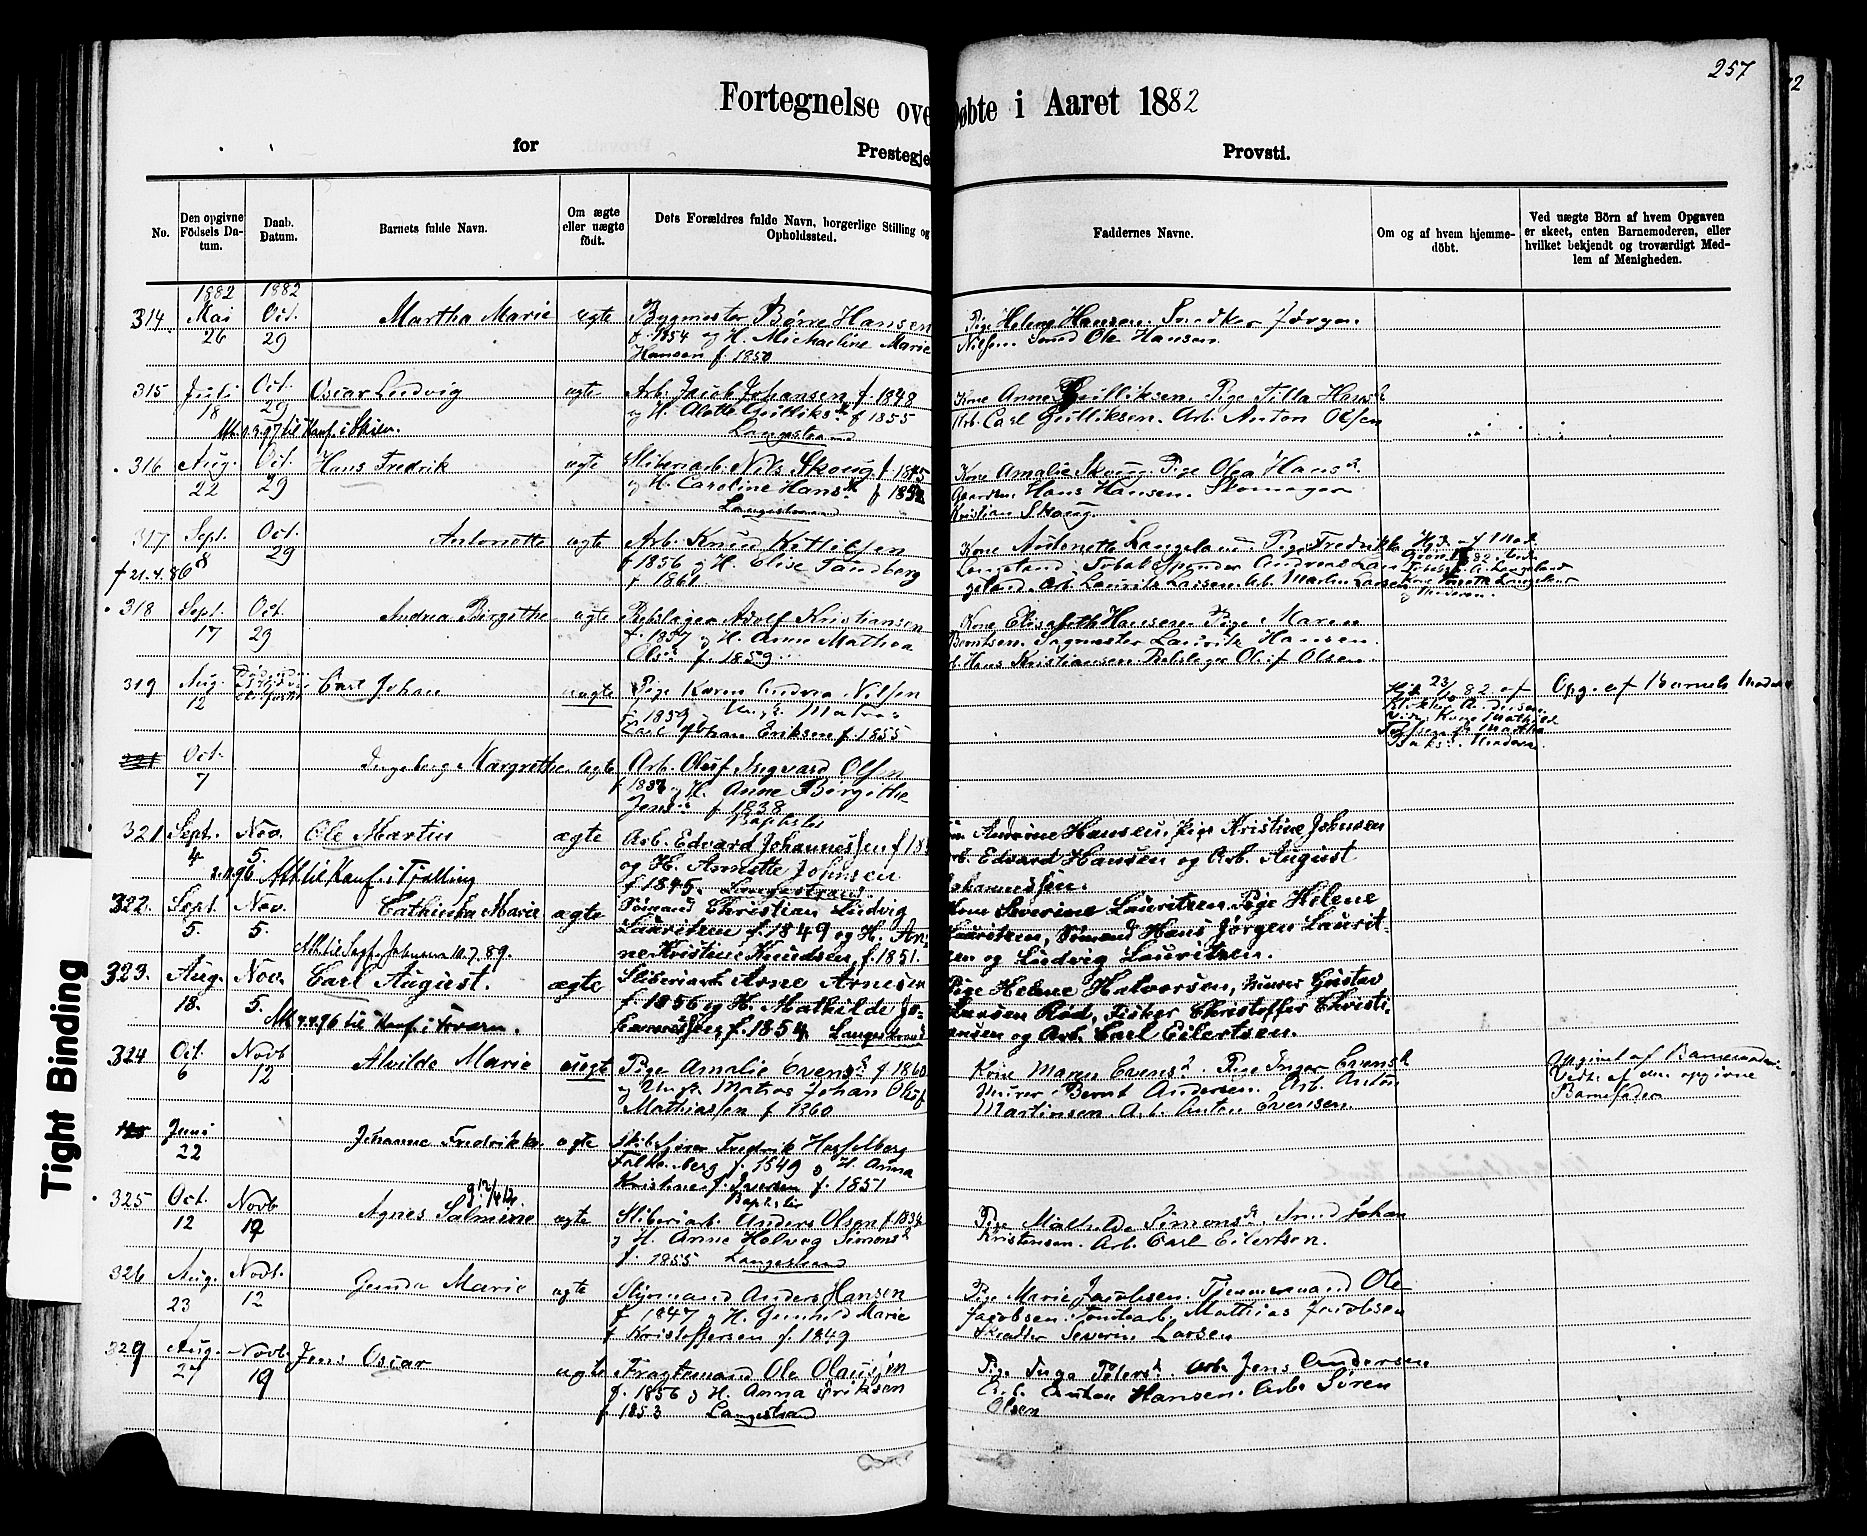 257
Fortegnelse ove døbte i Aaret 1882
for Prestegje Provsti.
No.
Den opgivne Födsels Da-tum.
Daab. Datum.
Barnets fulde Navn.
Om ægte eller uægte födt.
Dets Forældres fulde Navn, borgerlige Stilling og Opholdssted.
Faddernes Navne.
Om og af hvem hjemme-döbt.
Ved uægte Börn af hvem Opgaven er skeet, enten Barnemoderen, eller hvilket bekjendt og troværdigt Med-lem af Menigheden.
1882 1882
314 Mai 26 Oct. 29 Martha Marie ægte Bygmester Børre Hansen
f. 1854 og H. Michaeline Marie
Hansen f. 1850
Pige Helene Hansen. Snedker Jørgen
Nilsen. Smed Ole Hansen
315 Juli 18 Oct. 29 Oscar Ludvig ægte Arb. Jacob Johansen f. 1848
og H. Alette Gulliks. f 1855
Langestrand
til Konf. i Skien.
Kone Anne Gulliksen. Pige Tilla Hans
Arb. Carl Gulliksen. Arb. Anton Olsen
316 Aug. 22 Oct. 29 Hans Fredrik ægte Sliberiarb. Nils Skoug f. 1845
og H. Caroline Hans. f
Langestrand
Kone Amalie Skoug. Pige Olea Hans
Gaardbr. Hans Hansen. Skomager
Kristian Skoug.
317 Sept. 8 Oct. 29 Antonette ægte Arb. Knud Kittilsen
f 1856 og H. Elise Sandberg
f. 1861
f 21.4.86
Kone Antonette Langeland. Pige Fredrikke
Langeland, Andreas Lan
geland. Arb. Laurits Larsen. Arb. Martin Larsen
318 Sept. 17 Oct. 29 Andrea Birgithe ægte Rebslager Adolf Kristiansen
f. 1857 og H. Anne Mathea
Ols. f. 1859
Kone Elisabeth Hansen Pige Maren
Berntsen. Sagmester Lauritz Hansen.
Arb. Hans Kristiansen Rebslager Oluf Olsen
319 Aug. 12 Carl Johan uægte Pige Karen Andrea Nilsen
f 1859 Ung. Matros
Carl Johan Eriksen f. 1855
Hjd 23/10 82 af
Opg. af Barnets Moder
Oct. 7 Ingeborg Margrethe ægte Arb. Oluf Ingvard Olsen
f og H. Anne Birgithe
Jens. f 1838
Baptister
321 Sept. 4 Nov. 5. Ole Martin ægte Arb. Edvard Johannessen f 18
og H. Annette Johnsen
f. 1845. Langestrand
Att til Konf. i Tjølling
Andrine Hansen, Pige Kristine Johnsen
Arb. Edvard Hansen og Arb. August
Johannessen.
322. Sept. 5. Nov. 5. Cathinka Marie ægte Sömand Christian Ludvig
Lauritzen f. 1849 og H. An-
ne Kristine Knudsen, f. 1851.
10.7.89.
Kone Severine Lauritzen. Pige Helene
Lauritzen, Sömand Hans Jörgen Laurit-
zen og Ludvig Lauritzen.
323. Aug. 18. Nov. 5. Carl August. ægte Sliberiarb. Arne Arnesen
f. 1856 og H. Mathilde Jo-
hannessen, f. 1854. Langestrand
4.4.96 til Konf. i Fværn.
Pige Helene Halvorsen, Murer Gustav
Larsen Rød, Fisker Christoffer Christi-
ansen og Arb. Carl Eilertsen.
324 Oct. 6 Novb 12 Alvilde Marie uægte Pige Amalie Evens. f 1860
og Ungk. Matros Johan Oluf
Mathiassen f 1860
Kone Maren Evens. Pige Inger Evens.
Murer Bernt Andersen. Arb. Anton
Martinsen Arb. Anton Evensen.
Opgivet af Barnemoderen
Vedt. af den opgivne
Barnefader
Juni 22 Johanne Fredrikke ægte Fredrik Hasselberg
Falkenberg f. 1849 og H. Anna
Kristine f. Iversen f. 1851
Baptister
325 Oct. 12 Novb 12 Agnes Salmine ægte Sliberiarb. Anders Olsen f. 1834
og H. Anne Helvig Simons.
f. 1855 Langestrand
g 12/4 12.
Pige Mathilde Simons. Smed Johan
Kristensen. Arb. Carl Eilertsen.
326 Aug. 23 Novb. 12 Gunda Marie ægte Styrmand Anders Hansen
f 1847 og H. Gunhild Marie
Kristoffersen f. 1849
Pige Marie Jacobsen. Tjømmermand Ole
Jacobsen. Tomtearb. Mathias Jacobsen
Skrædder Severin Larsen
329 Aug. 27 Novb. 19 Jens Oscar ægte Fragtemand Ole Olaussen
f. 1856 og H. Anna Eriksen
f 1853 Langestrand
Pige Inga Peters. Arb. Jens Andersen
Arb. Anton Hansen. Arb. Søren
Olsen
Tight Binding